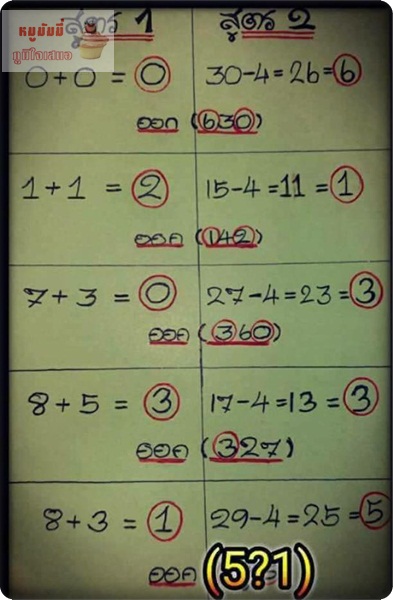 หมูมัมมี่
ภูมิใจเสนอ
สูตร 1 สูตร 2
0+0 = 0 30-4=26=6
ออก (630)
1+1 = 2 15-4=11=1
ออก (142)
7+3 = 0 27-4=23=3
ออก (360)
8+5 = 3 17-4=13=3
ออก (327)
8+3 = 1 29-4=25=5
ออก (5?1)